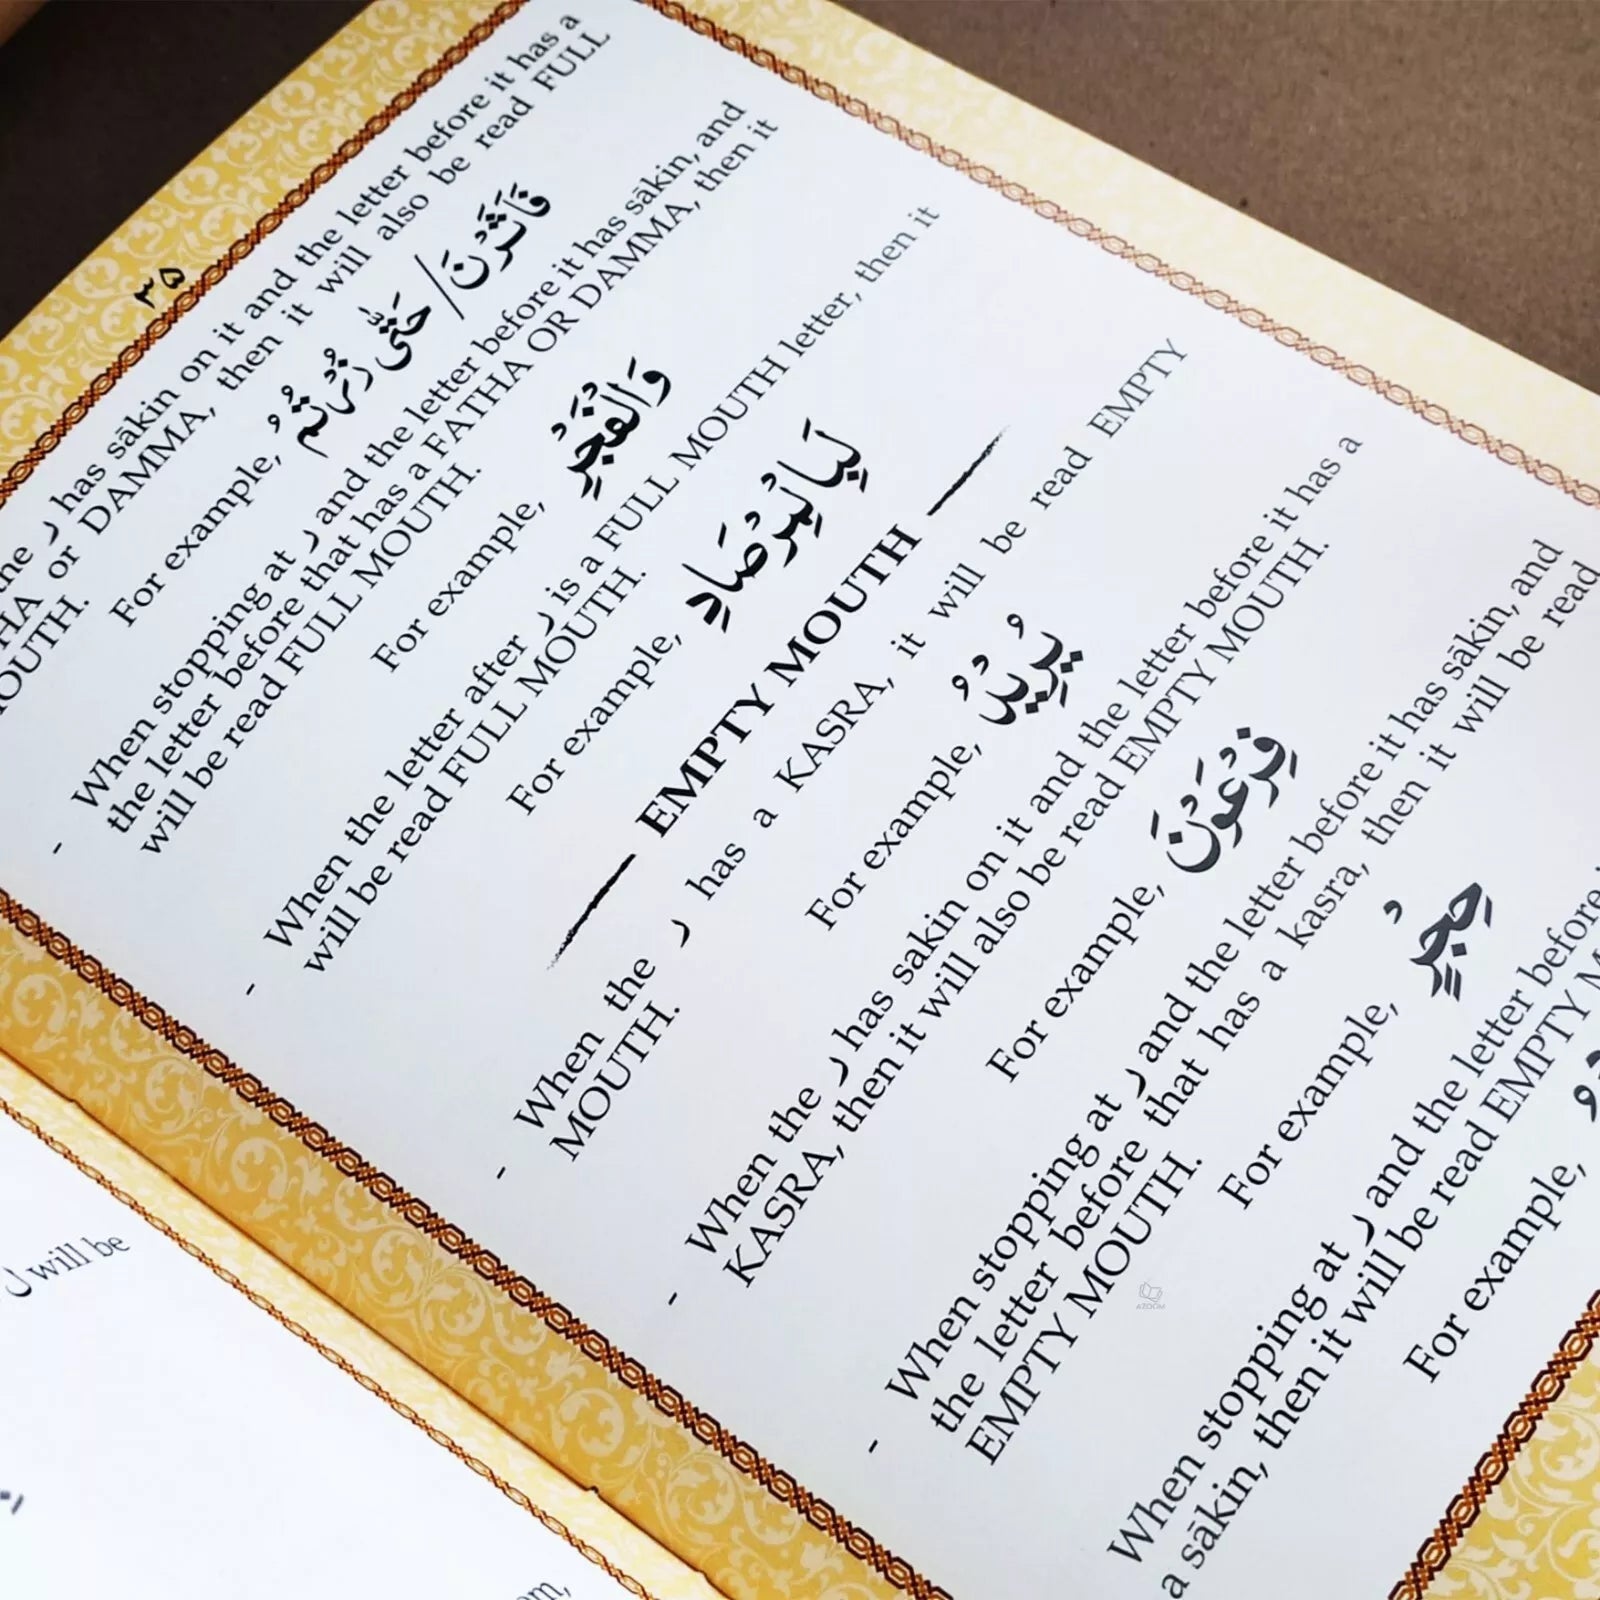 ۳۵
has sākin on it and the letter before it has a
or DAMMA, then it will also be read FULL
MOUTH.
For example, فَاَثَرْنَ / حَتّٰى زُرْتُمُ
- When stopping at ر and the letter before it has sākin, and
the letter before that has a FATHA OR DAMMA, then it
will be read FULL MOUTH.
For example, وَالْفَجْرِ
- When the letter after ر is a FULL MOUTH letter, then it
will be read FULL MOUTH.
For example, لَبِالْمِرْصَادِ
EMPTY MOUTH
- When the ر has a KASRA, it will be read EMPTY
MOUTH.
For example, يُرِيْدُ
- When the ر has sakin on it and the letter before it has a
KASRA, then it will also be read EMPTY MOUTH.
For example, فِرْعَوْنَ
- When stopping at ر and the letter before it has sākin, and
the letter before that has a kasra, then it will be read
EMPTY MOUTH.
For example, حِجْرٍ
When stopping at ر and the letter before
a sākin, then it will be read EMPTY
For example,
ل will be
AZOOM